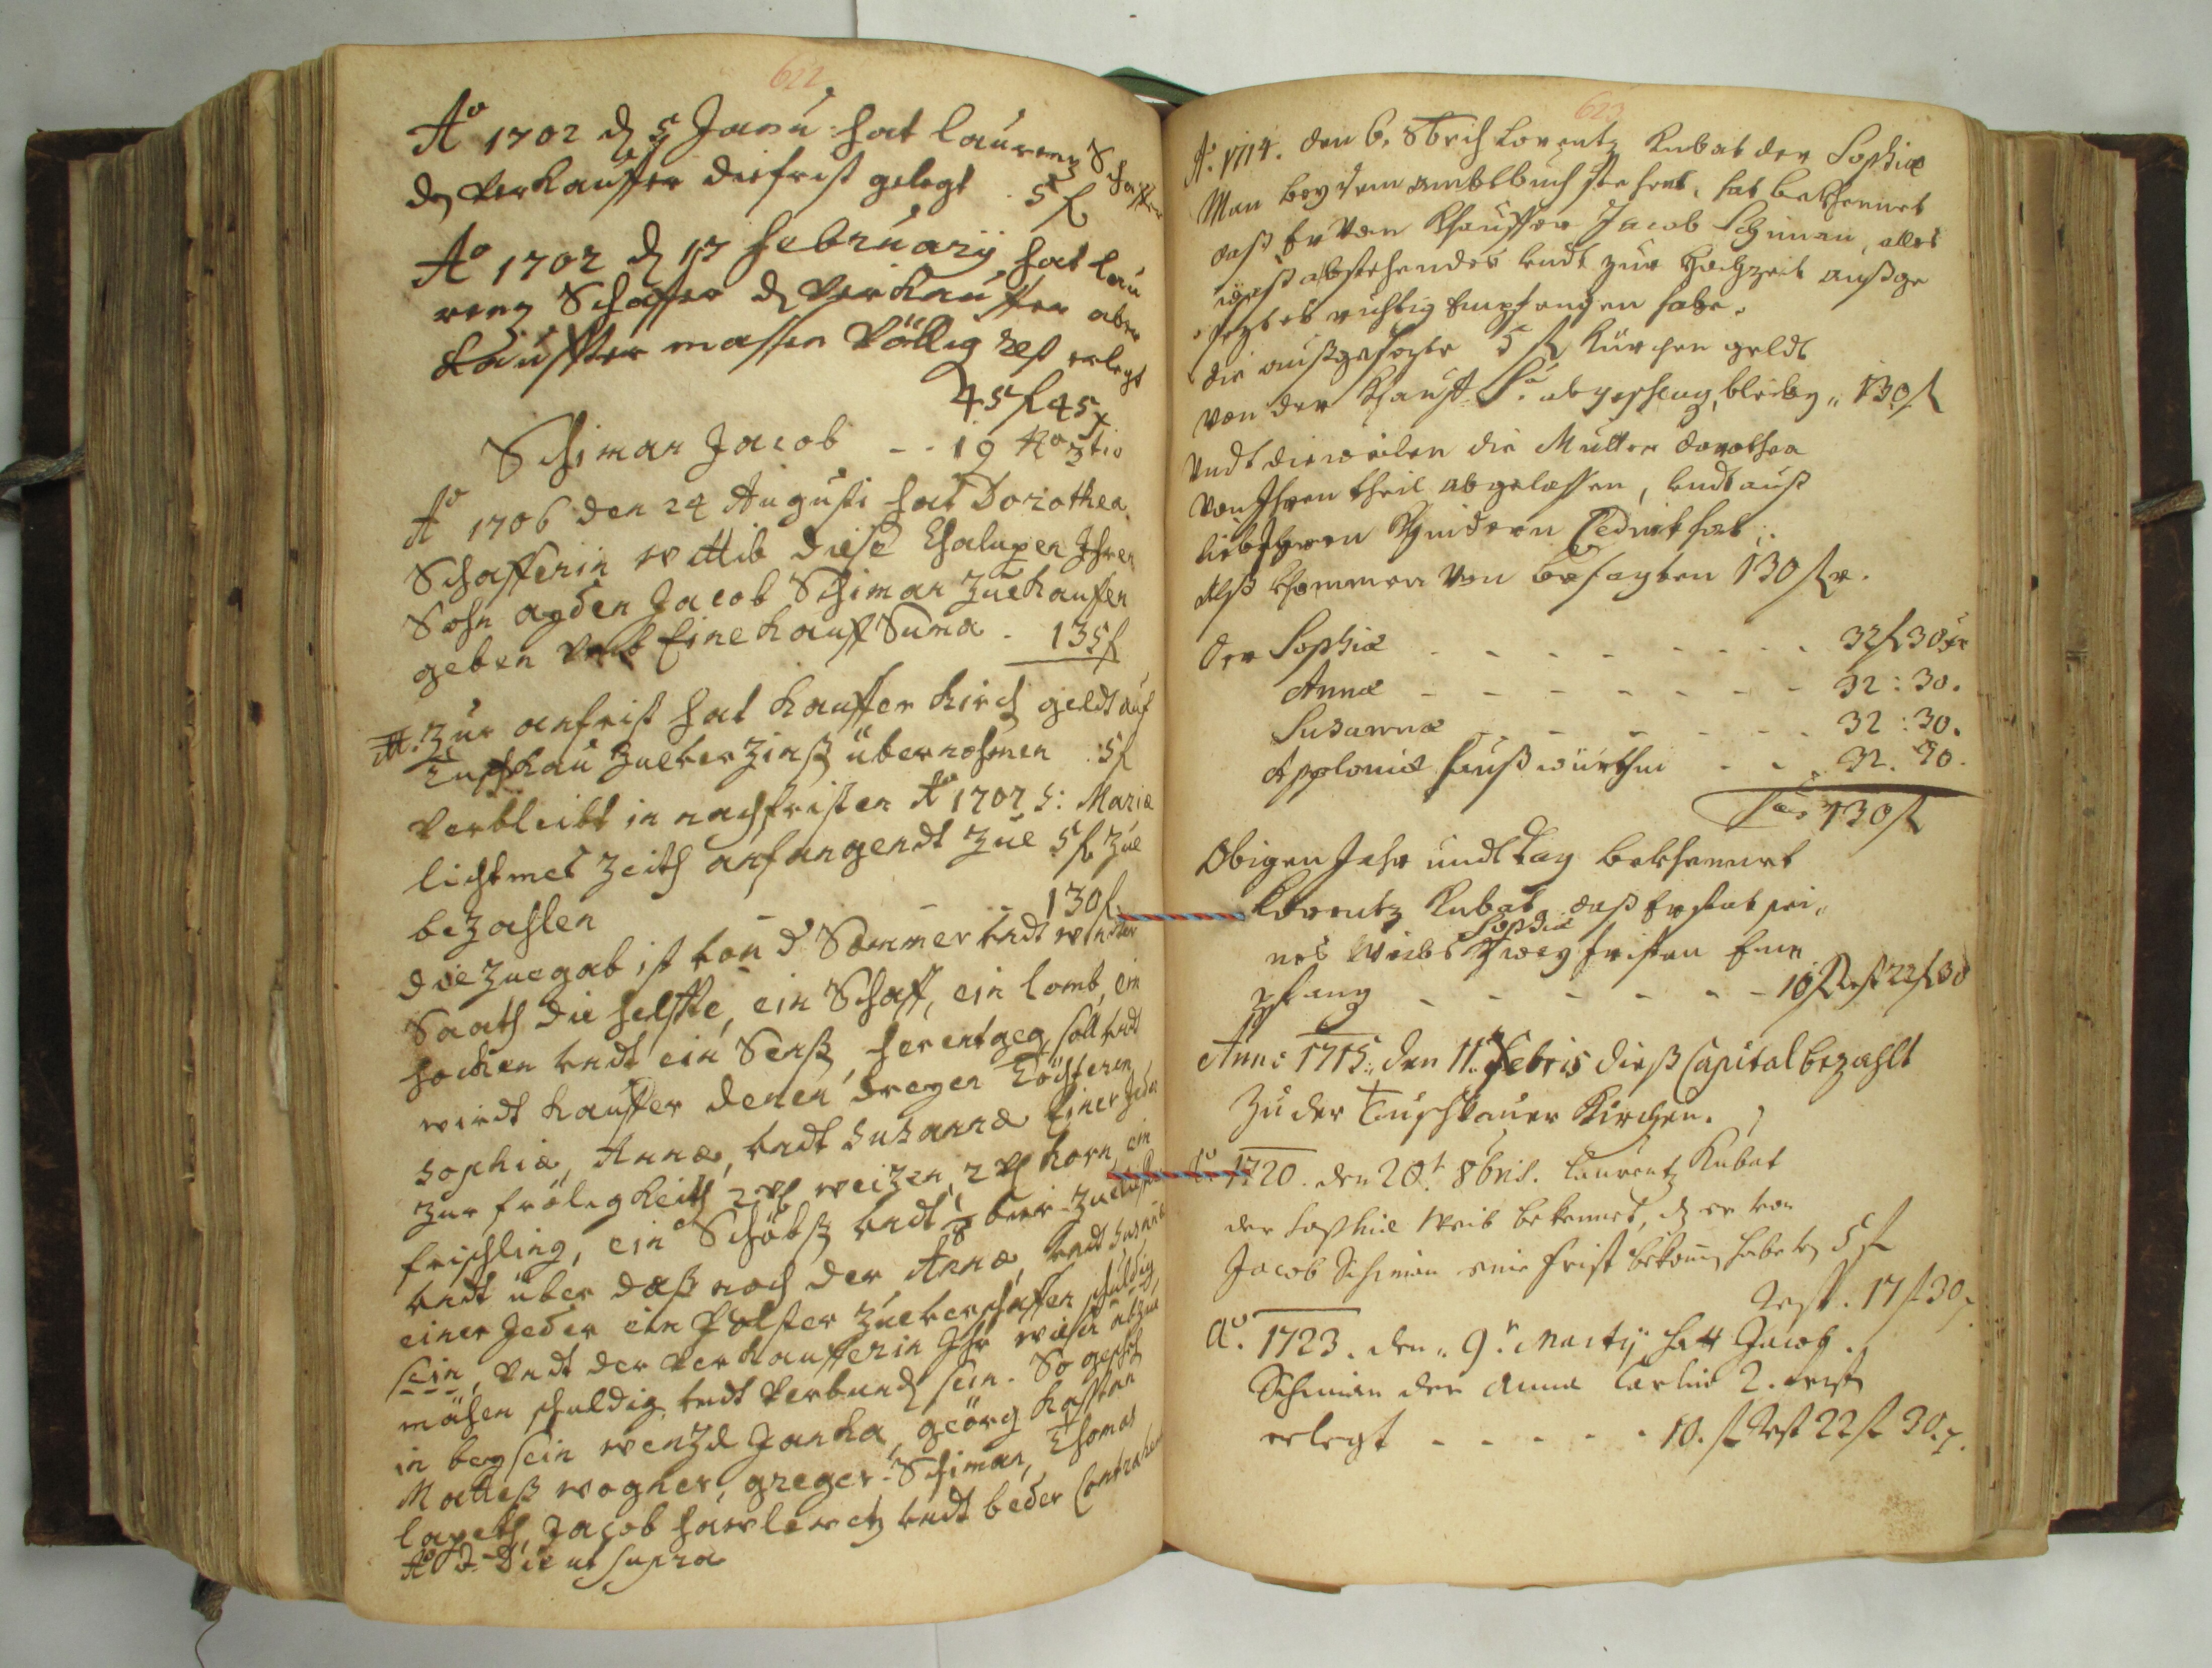 622
Ao 1702 den 5 Janu: hat laurenz Schaffer
den verkauffer die frist gelegt . 5 fl
Ao 1702 den 17 Februarij hat lau
renz Schaffer den verkauffer aber
kauffter massen völlig rest erlegt
45 fl 45 x
Schiman Jacob - - 19
Ao 1706 den 24 Augusti hat Dorothea
Schafferin wittib diese Chalupen Ihren
Sohn agden Jacob Schiman zuekauffen
geben umb Eine kauff Suma . 135 fl
Zur anfrist hat kauffer kirch geldt auf
Tuschkau zueverzinß übernohmen . 5 fl
verbleibt in nachfristen Ao 1707 S: Mariæ
lichtmes Zeith anfangendt zue 5 fl zue
bezahlen - - - 130 fl
die zuegab ist von d Sommer undt winter
Saath die helffte, ein Schaff, ein lamb, ein
hocken undt ein Senß, herentgeg soll undt
wirdt kauffer denen dreyen Töchteren
Sophiæ, Annæ, undt Susannæ Einer jeden
zur fröligkeith 2 weizen, 2 korn, ein
frischling, ein Schöbß undt ½ bier
undt über daß noch der Annæ, undt Susannæ
einer Jeder ein Polster zueverschaffen schuldig
sein, undt der verkaufferin Ihr wiesen abzue
mähen schuldig undt verbundt sein. So geschehen
in beysein wenzl Janka, geörg kasstan
Matteß wogner, greger Schiman, Thomas
layeth, Jacob hawlewetz undt beder Contrahenten
Ao & Die ut supra
623
Ao. 1714. den 6. 8brih Lorentz Kubat der Sophiæ
Man bey dem ambtbuch stehent, hat bekhennet
daß Er von Khauffer Jacob Schiman, alles
abstehender undt zur Hochzeit außge
seztes richtig Empfangen habe.
die außgesezte 5 fl Kürchen geldt
von der Khauff Sa. abgeschlag, bleiben „ 130 fl
Undt dieweilen die Mutter Dorothea
von Ihren theil abgelassen, undt auß
lieb Ihren Khindern Cediret hat:
Alß khommen von besagten 130 fl
der Sophiæ - - - - - - - - - 32 fl 30 xr
Annæ - - - - - - - - 32 : 30.
Susannæ - - - - - - - 32 : 30.
Apploniæ haußwürthin - - 32. 30.
Sa. 130 fl
Obigen Jahr undt Tag bekhennet
Lorentz Kubat, daß Er statt sei„
nes Weibs Sophiæ Zwey fristen Em„
pfang - - - - - - - 10 fl Rest 22 fl 30
Anno 1715. den 11. Febris dieß Capital bezahlt
zu der Tuschkauer Kirchen.
Ao. 1720. den 20t. 8bris. Laurentz Kubat
der Sophiæ Weib bekennet, dz er von
Jacob Schiman eine frist bekomen habe 5 fl
Rest. 17 fl 30 x
Ao. 1723. den „ 9.n Martij hatt Jacob
Schiman der Anna 2. frist
erlegt - - - - - 10. fl Rest 22 fl 30. x.